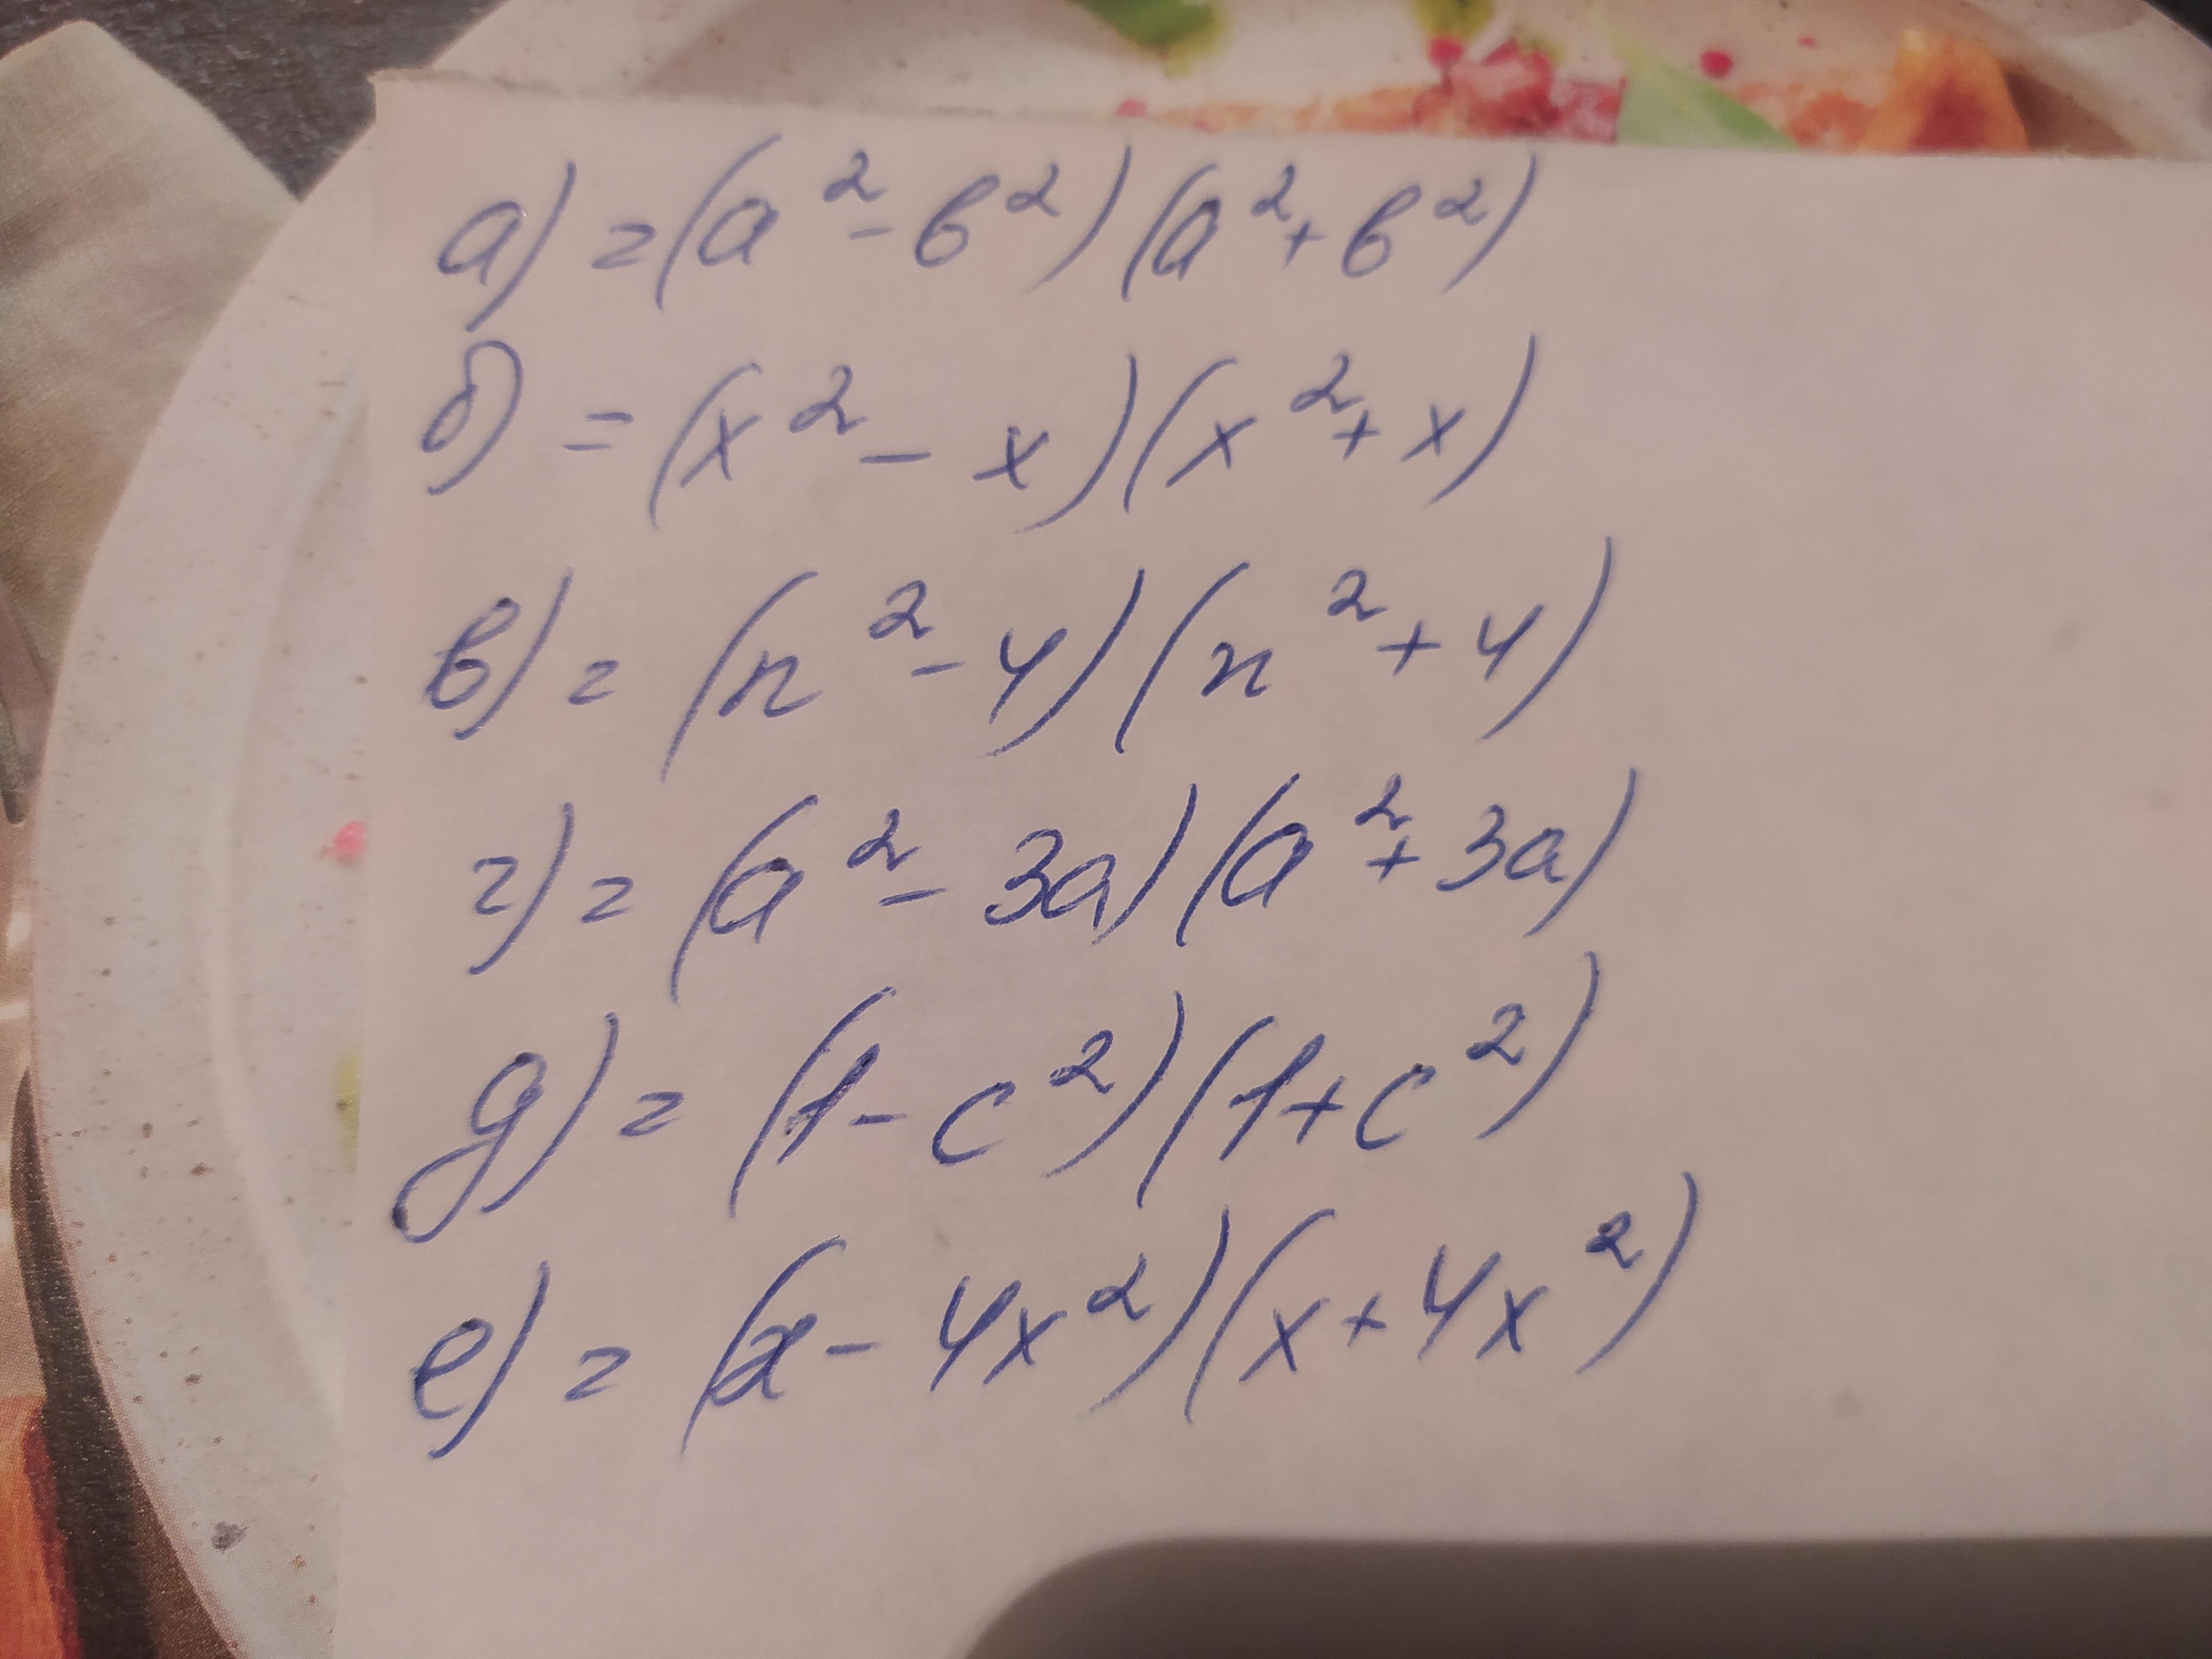 а) = (a² - b²)(a² + b²)
б) = (x² - x)(x² + x)
в) = (n² - 4)(n² + 4)
г) = (a² - 3a)(a² + 3a)
д) = (1 - c²)(1 + c²)
е) = (x - 4x²)(x + 4x²)